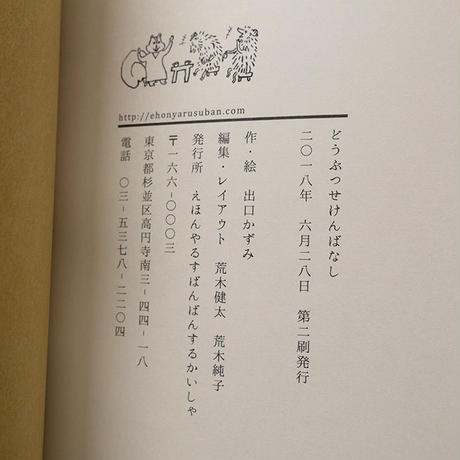 http://ehonyarusuban.com
どうぶつせけんばなし
二〇一八年 六月二八日 第二刷発行
作・絵 出口かずみ
編集・レイアウト 荒木健太 荒木純子
発行所 えほんやるすばんばんするかいしゃ
〒一六六-〇〇〇三
東京都杉並区高円寺南三-四四-一八
電話 〇三-五三七八-二二〇四